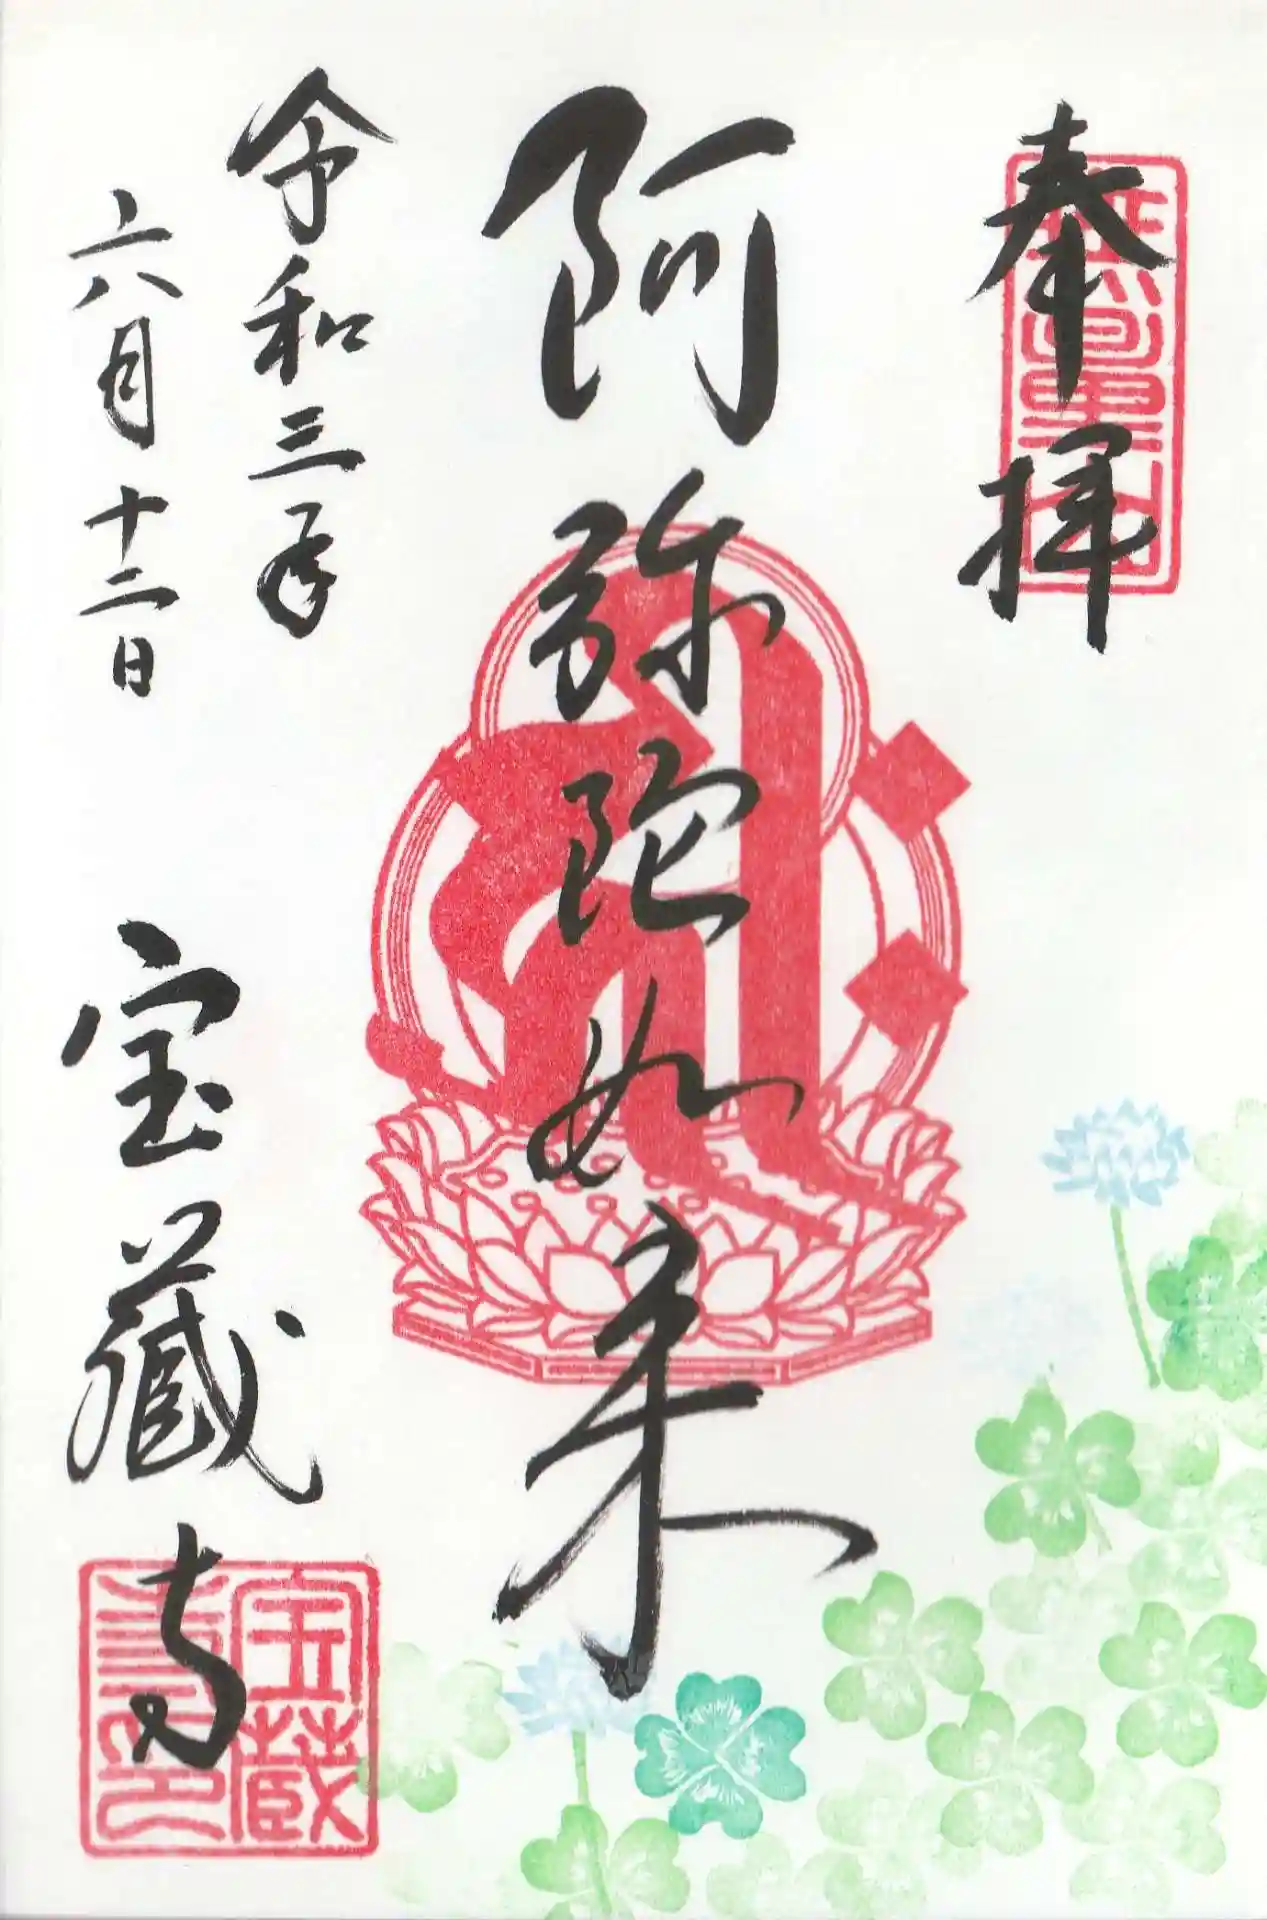 奉拝
阿弥陀如来
令和三年
六月十二日
宝蔵寺
無量山
宝蔵
寺印